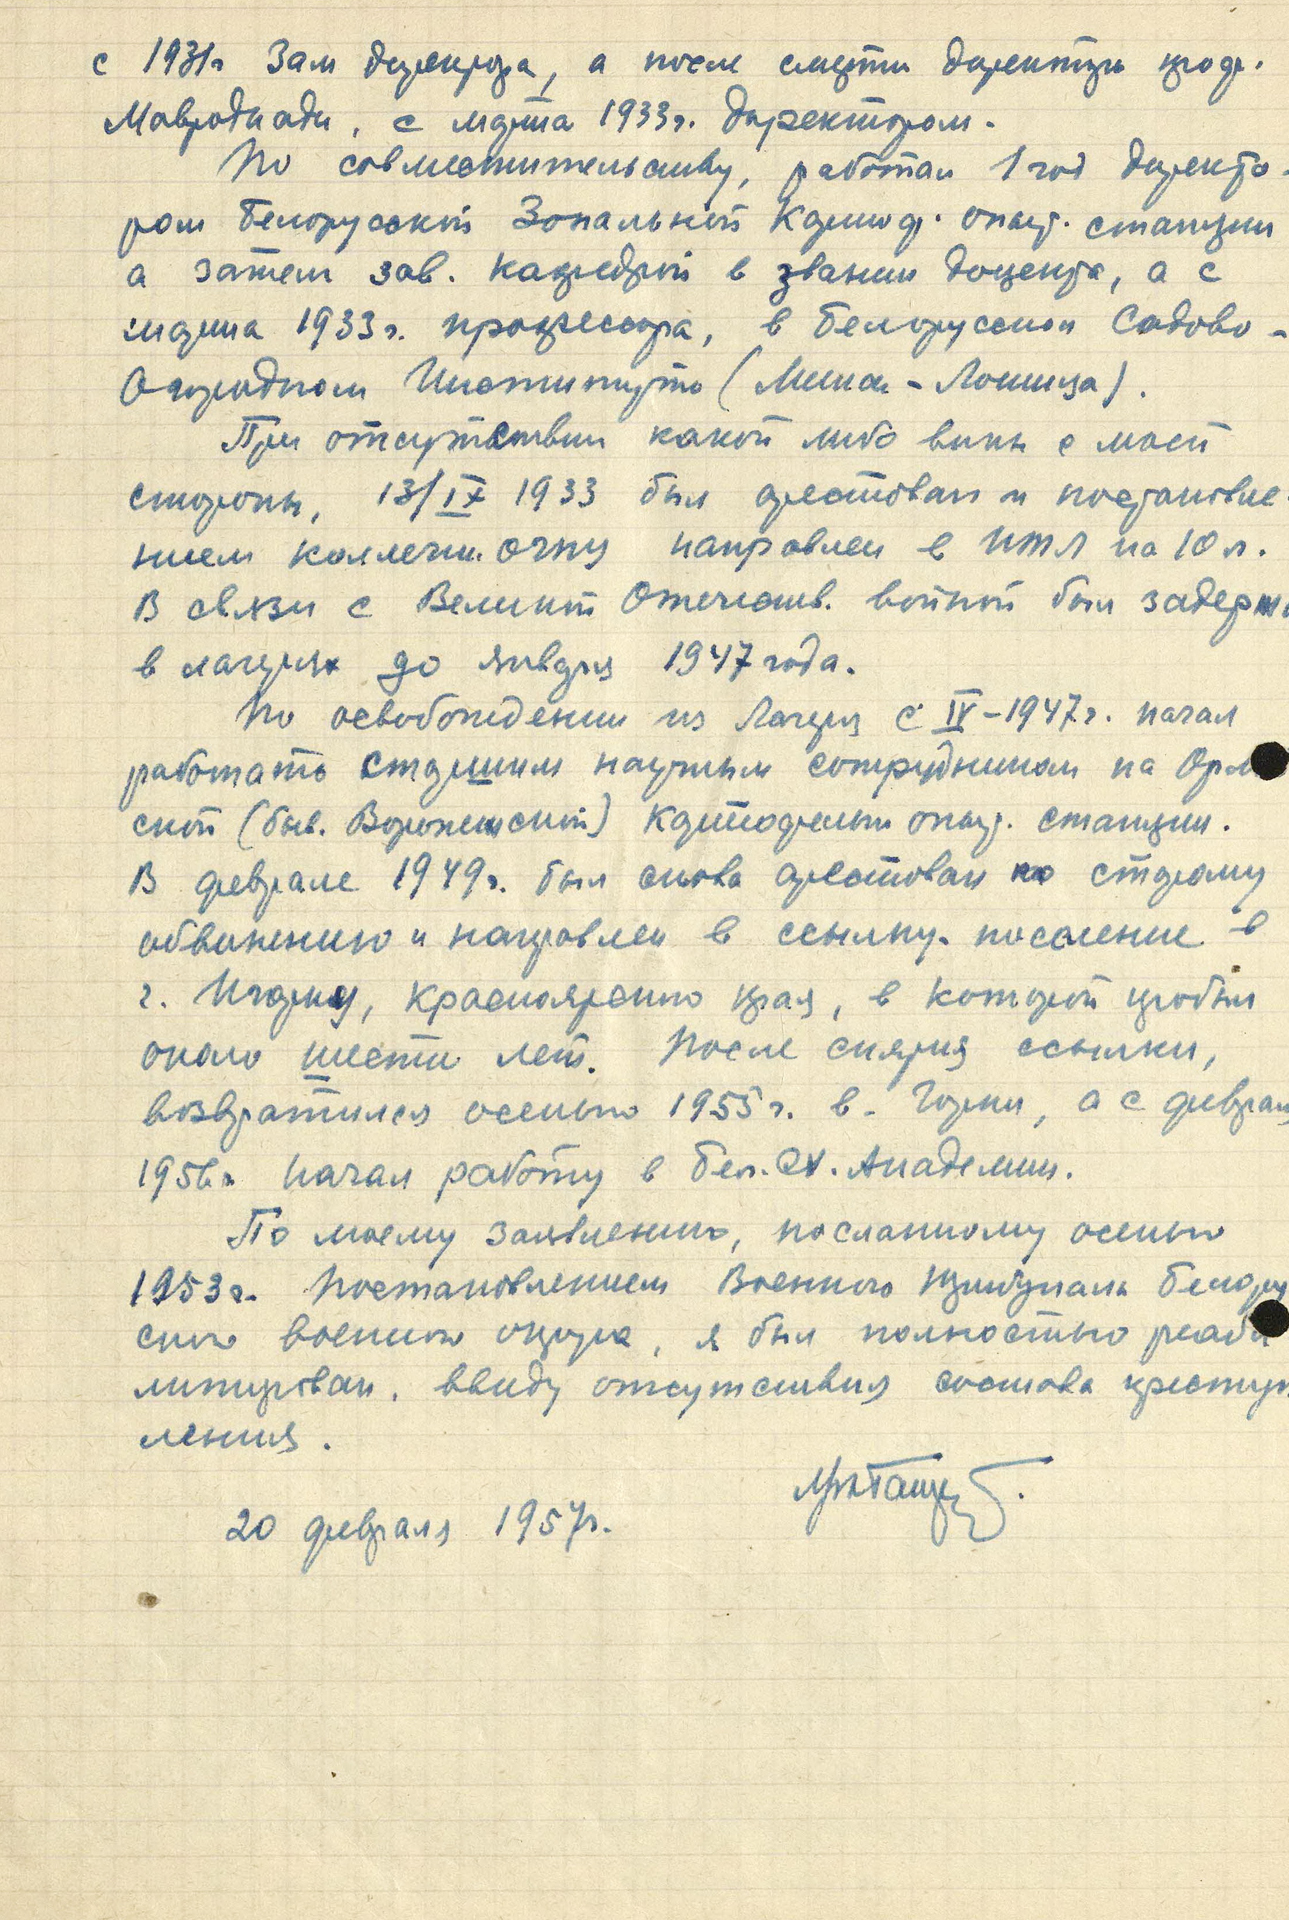 с 1931г Зам директора, а после смерти директора проф.
Мавродиади, с марта 1933г. директором.
По совместительству, работал 1 год директо-
ром Белорусской Зональной Картоф. опыт. станции
а затем зав. кафедрой в звании доцента, а с
марта 1933г. профессора, в Белорусском Садово-
Огородном Институте (Минск-Лошица).
При отсутствии какой либо вины с моей
стороны, 13/IX 1933 был арестован и постановле-
нием коллегии ОГПУ направлен в ИТЛ на 10 л.
В связи с Великой Отечеств. войной был задерж
в лагерях до января 1947 года.
По освобождении из Лагеря с IV-1947г. начал
работать старшим научным сотрудником на
ской (быв. Воронежской) Картофельн опыт. станции.
В феврале 1949г. был снова арестован по старому
обвинению и направлен в ссылку. поселение в
г. Игарку, Красноярского края, в которой пробыл
около шести лет. После снятия ссылки,
возвратился осенью 1955г. в. Горки, а с феврал
1956г начал работу в Бел. СХ. Академии.
По моему заявлению, посланному осенью
1953г. Постановлением Военного Трибунала Белорус
ского военного округа, я был полностью реаби
литирован, ввиду отсутствия состава преступ
ления.
20 февраля 1957г.